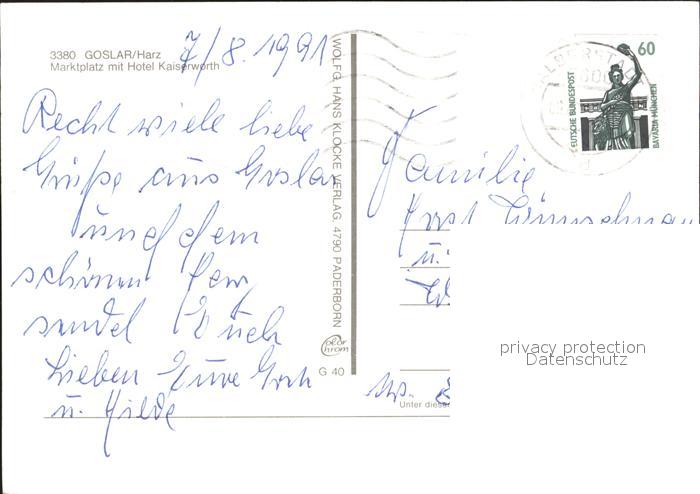 3380 GOSLAR/Harz
Marktplatz mit Hotel Kaiserworth
7/8. 1991
Recht viele liebe
Grüße aus Goslar
und dem
schönen
sendet Euch
Lieben Eure
u. Hilde
WOLFG. HANS KLOCKE VERLAG, 4790 PADERBORN
Color
chrom
G 40
60
DEUTSCHE BUNDESPOST
BAVARIA MÜNCHEN
Familie
Horst
u.
Str.
Unter dieser
privacy protection
Datenschutz